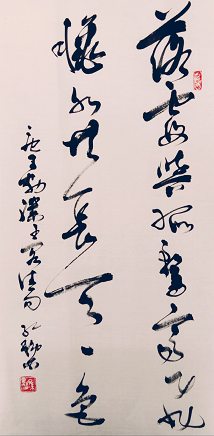 落霞与孤鹜齐飞
秋水共长天一色
王勃滕王阁佳句